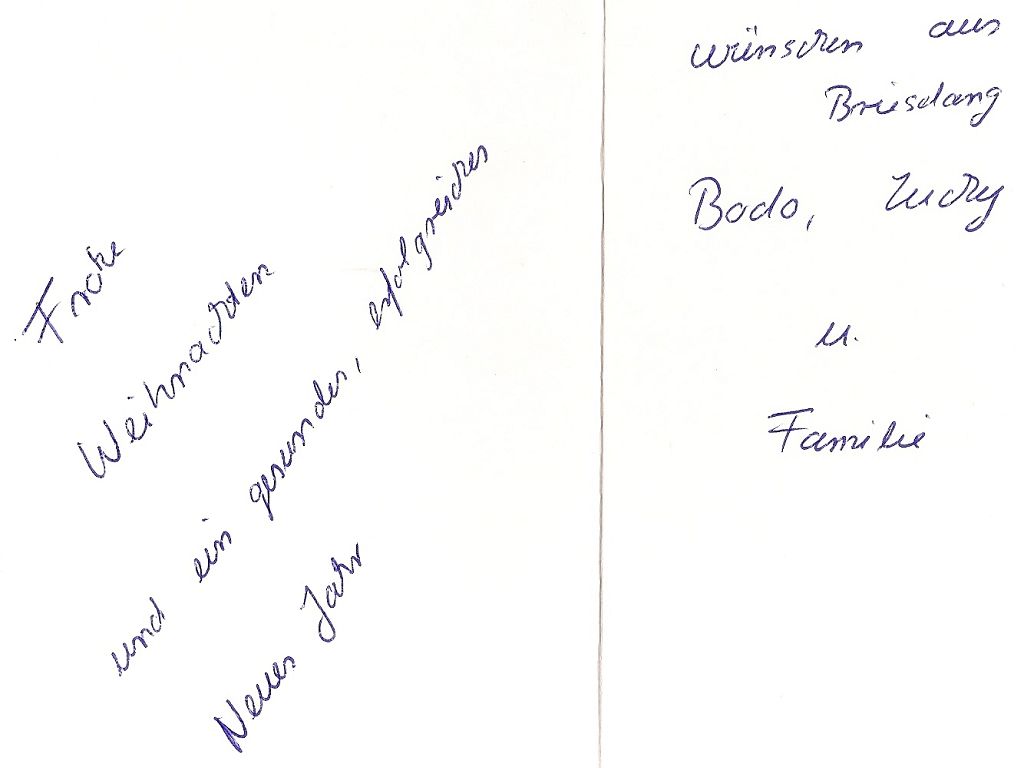 Frohe
Weihnachten
und ein gesundes, erfolgreiches
Neues Jahr
wünschen aus
Brieselang
Bodo,
u.
Familie